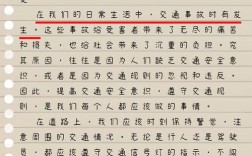 在我们的日常生活中，交通事故时有发
生。这些事故给受害者带来了无尽的痛苦
和损失，也给社会带来了沉重的负担。究
其原因，往往是因为人们缺乏交通安全意
识，或者是因为交通规则的忽视和违反。
因此，提高交通安全意识，遵守交通规
则，是我们每个人都应该做的事情。
在道路上，我们应该时刻保持警觉，注
意周围的交通情况。无论是行人还是驾驶
员，都应该遵守交通信号灯的指示，不闯